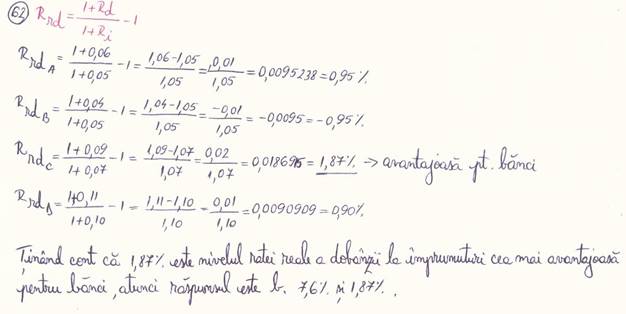 62 R_rd = (1+Rd)/(1+Ri) - 1
R_rd_A = (1+0,06)/(1+0,05) - 1 = (1,06-1,05)/1,05 = 0,01/1,05 = 0,0095238 = 0,95%
R_rd_B = (1+0,04)/(1+0,05) - 1 = (1,04-1,05)/1,05 = -0,01/1,05 = -0,0095 = -0,95%.
R_rd_C = (1+0,09)/(1+0,07) - 1 = (1,09-1,07)/1,07 = 0,02/1,07 = 0,018695 = 1,87% → avantajoasă pt. bănci
R_rd_D = (1+0,11)/(1+0,10) - 1 = (1,11-1,10)/1,10 = 0,01/1,10 = 0,0090909 = 0,90%.
Ținând cont că 1,87% este nivelul ratei reale a dobânzii la împrumuturi cea mai avantajoasă
pentru bănci, atunci răspunsul este b. 7,6% și 1,87%.